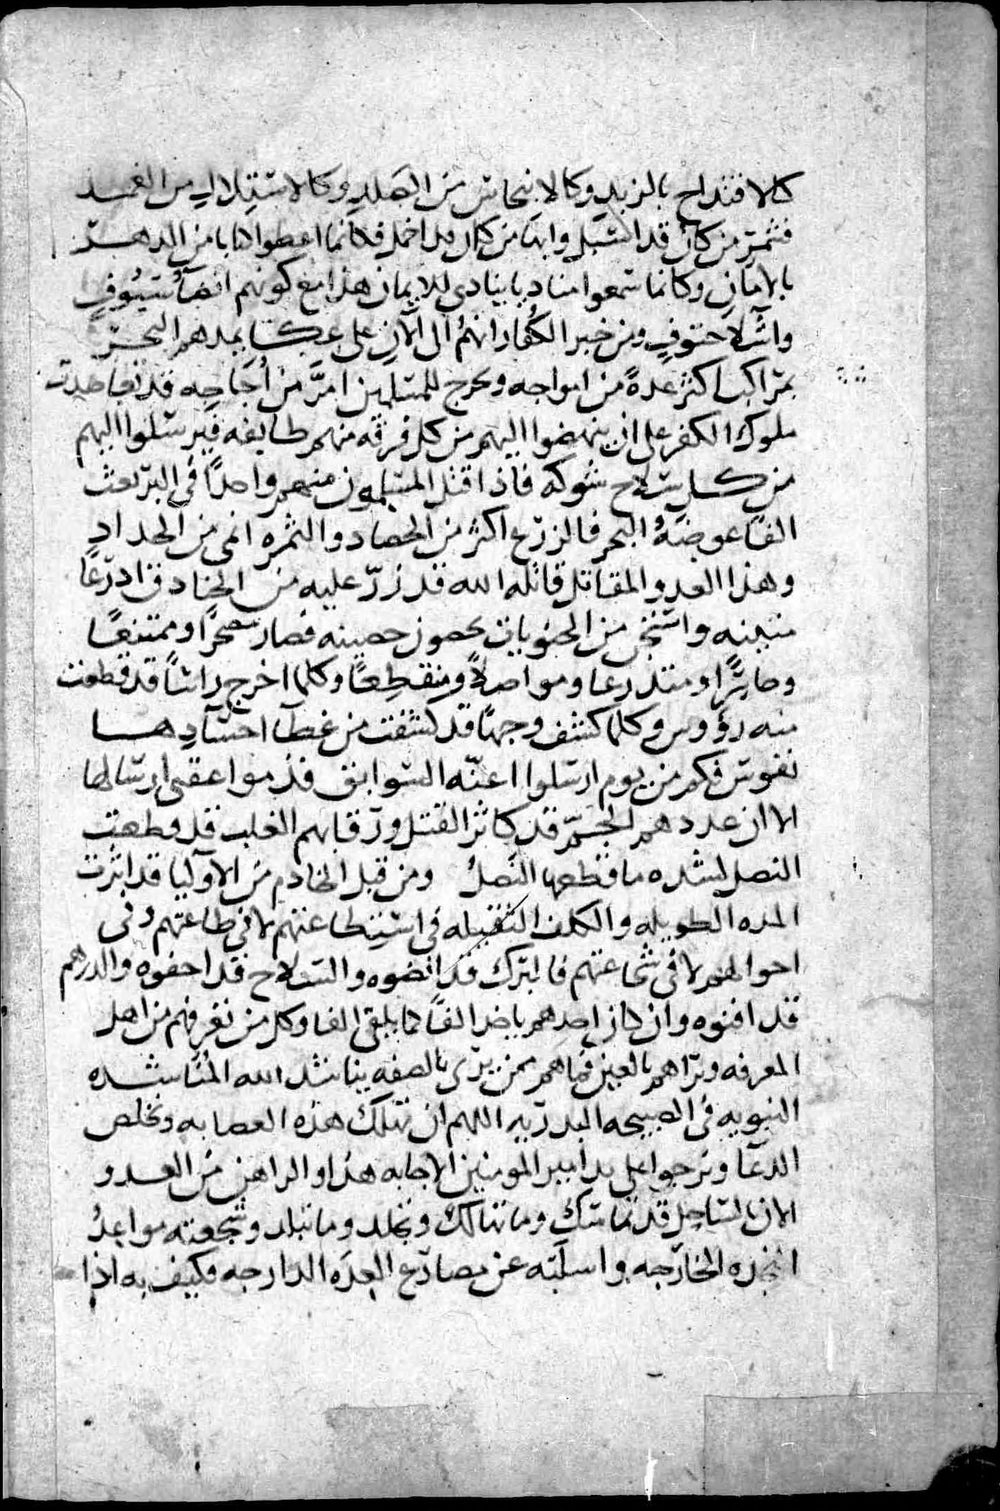 كالاقتداح بالزند وكالانبجاس من الصلد وكالاستلال من الغمد
فثم من كان قد استبل واب من كان قد اخمل فكانما اعطوا كتابا من الدهر
بالامان وكانما سمعوا مناديا ينادي للايمان هذا مع كونهم انضاء سيوف
واشلاء حتوف ومن خبر الكفار انهم الى الآن على عكا يمدهم البحر
بمراكب اكثر عدة من امواجه ويخرج للمسلمين امر من اجاجه قد تعاضدت
ملوك الكفر على ان ينهضوا اليهم من كل فرقة منهم طايفه فيرسلوا اليهم
من كل سلاح شوكه فاذا قتل المسلمون منهم واحدا في البر بعث
الفا عوضه البحر فالزرع اكثر من الحصاد والثمره انمى من الجداد
وهذا العدو المقاتل قاتله الله قد زر عليه من الخنادق ادرعا
متينه واستجن من الجنويات بحصون حصينه فصار مصحرا ومتمنعا
وحاسرا ومتدرعا ومواصلا ومنقطعا وكلما اخرج راسا قد قطعت
منه رؤوس وكلما كشف وجها قد كشفت من غطا اجسادها
نفوس فكم من يوم ارسلوا اعنه السوابق فذموا عقبى ارسالها
الا ان عددهم الجم قد كاثر القتل ورقابهم الغلب قد قطعت
النصل لشده ما قطعها النصل ومن قبل الخادم من الاوليا قد اثرت
المده الطويله والكلف الثقيله في استطاعتهم لا في طاعتهم وفي
احوالهم لا في شجاعتهم فالبرك قد انضوه والسلاح قد احفوه والدرهم
قد افنوه وان كان احدهم يأخذ الفا كما يلقى الفا وكل من نعرفهم من اهل
المعرفه ونراهم بالعين فما هم ممن يرى بالصفه يناشد الله المناشده
النبويه في الصبيحه البدريه اللهم ان تهلك هذه العصابه ويخلص
الدعآ ويرجوا على يد امير المومنين الاجابه هذا والراهن من العدو
الان بالساحل قد تماسك وما تهالك وتجلد وما تبلد وشجعته مواعد
النجده الخارجه واسلته عن مصارع العدة الدارجه فكيف به اذا